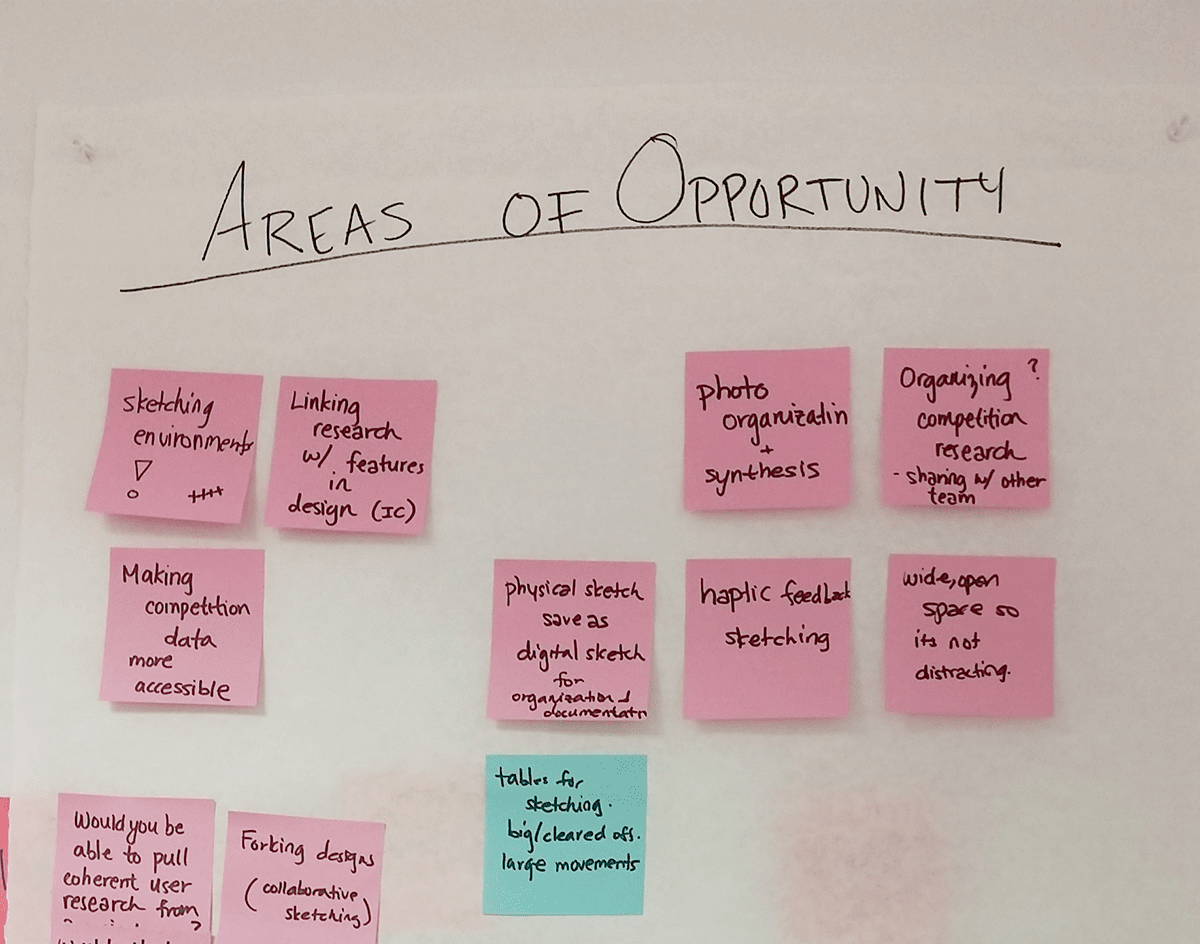 AREAS OF OPPORTUNITY
sketching
environments
Linking
research
w/ features
in
design (IC)
photo
organizatin
+
synthesis
Organizing ?
competition
research
- sharing w/ other
team
Making
competition
data
more
accessible
physical sketch
save as
digital sketch
for
organization &
documentatn
haptic feedback
sketching
wide, open
space so
its not
distracting.
tables for
sketching.
big/cleared off.
large movements
Would you be
able to pull
coherent user
research from
?
Forking designs
(collaborative
sketching)